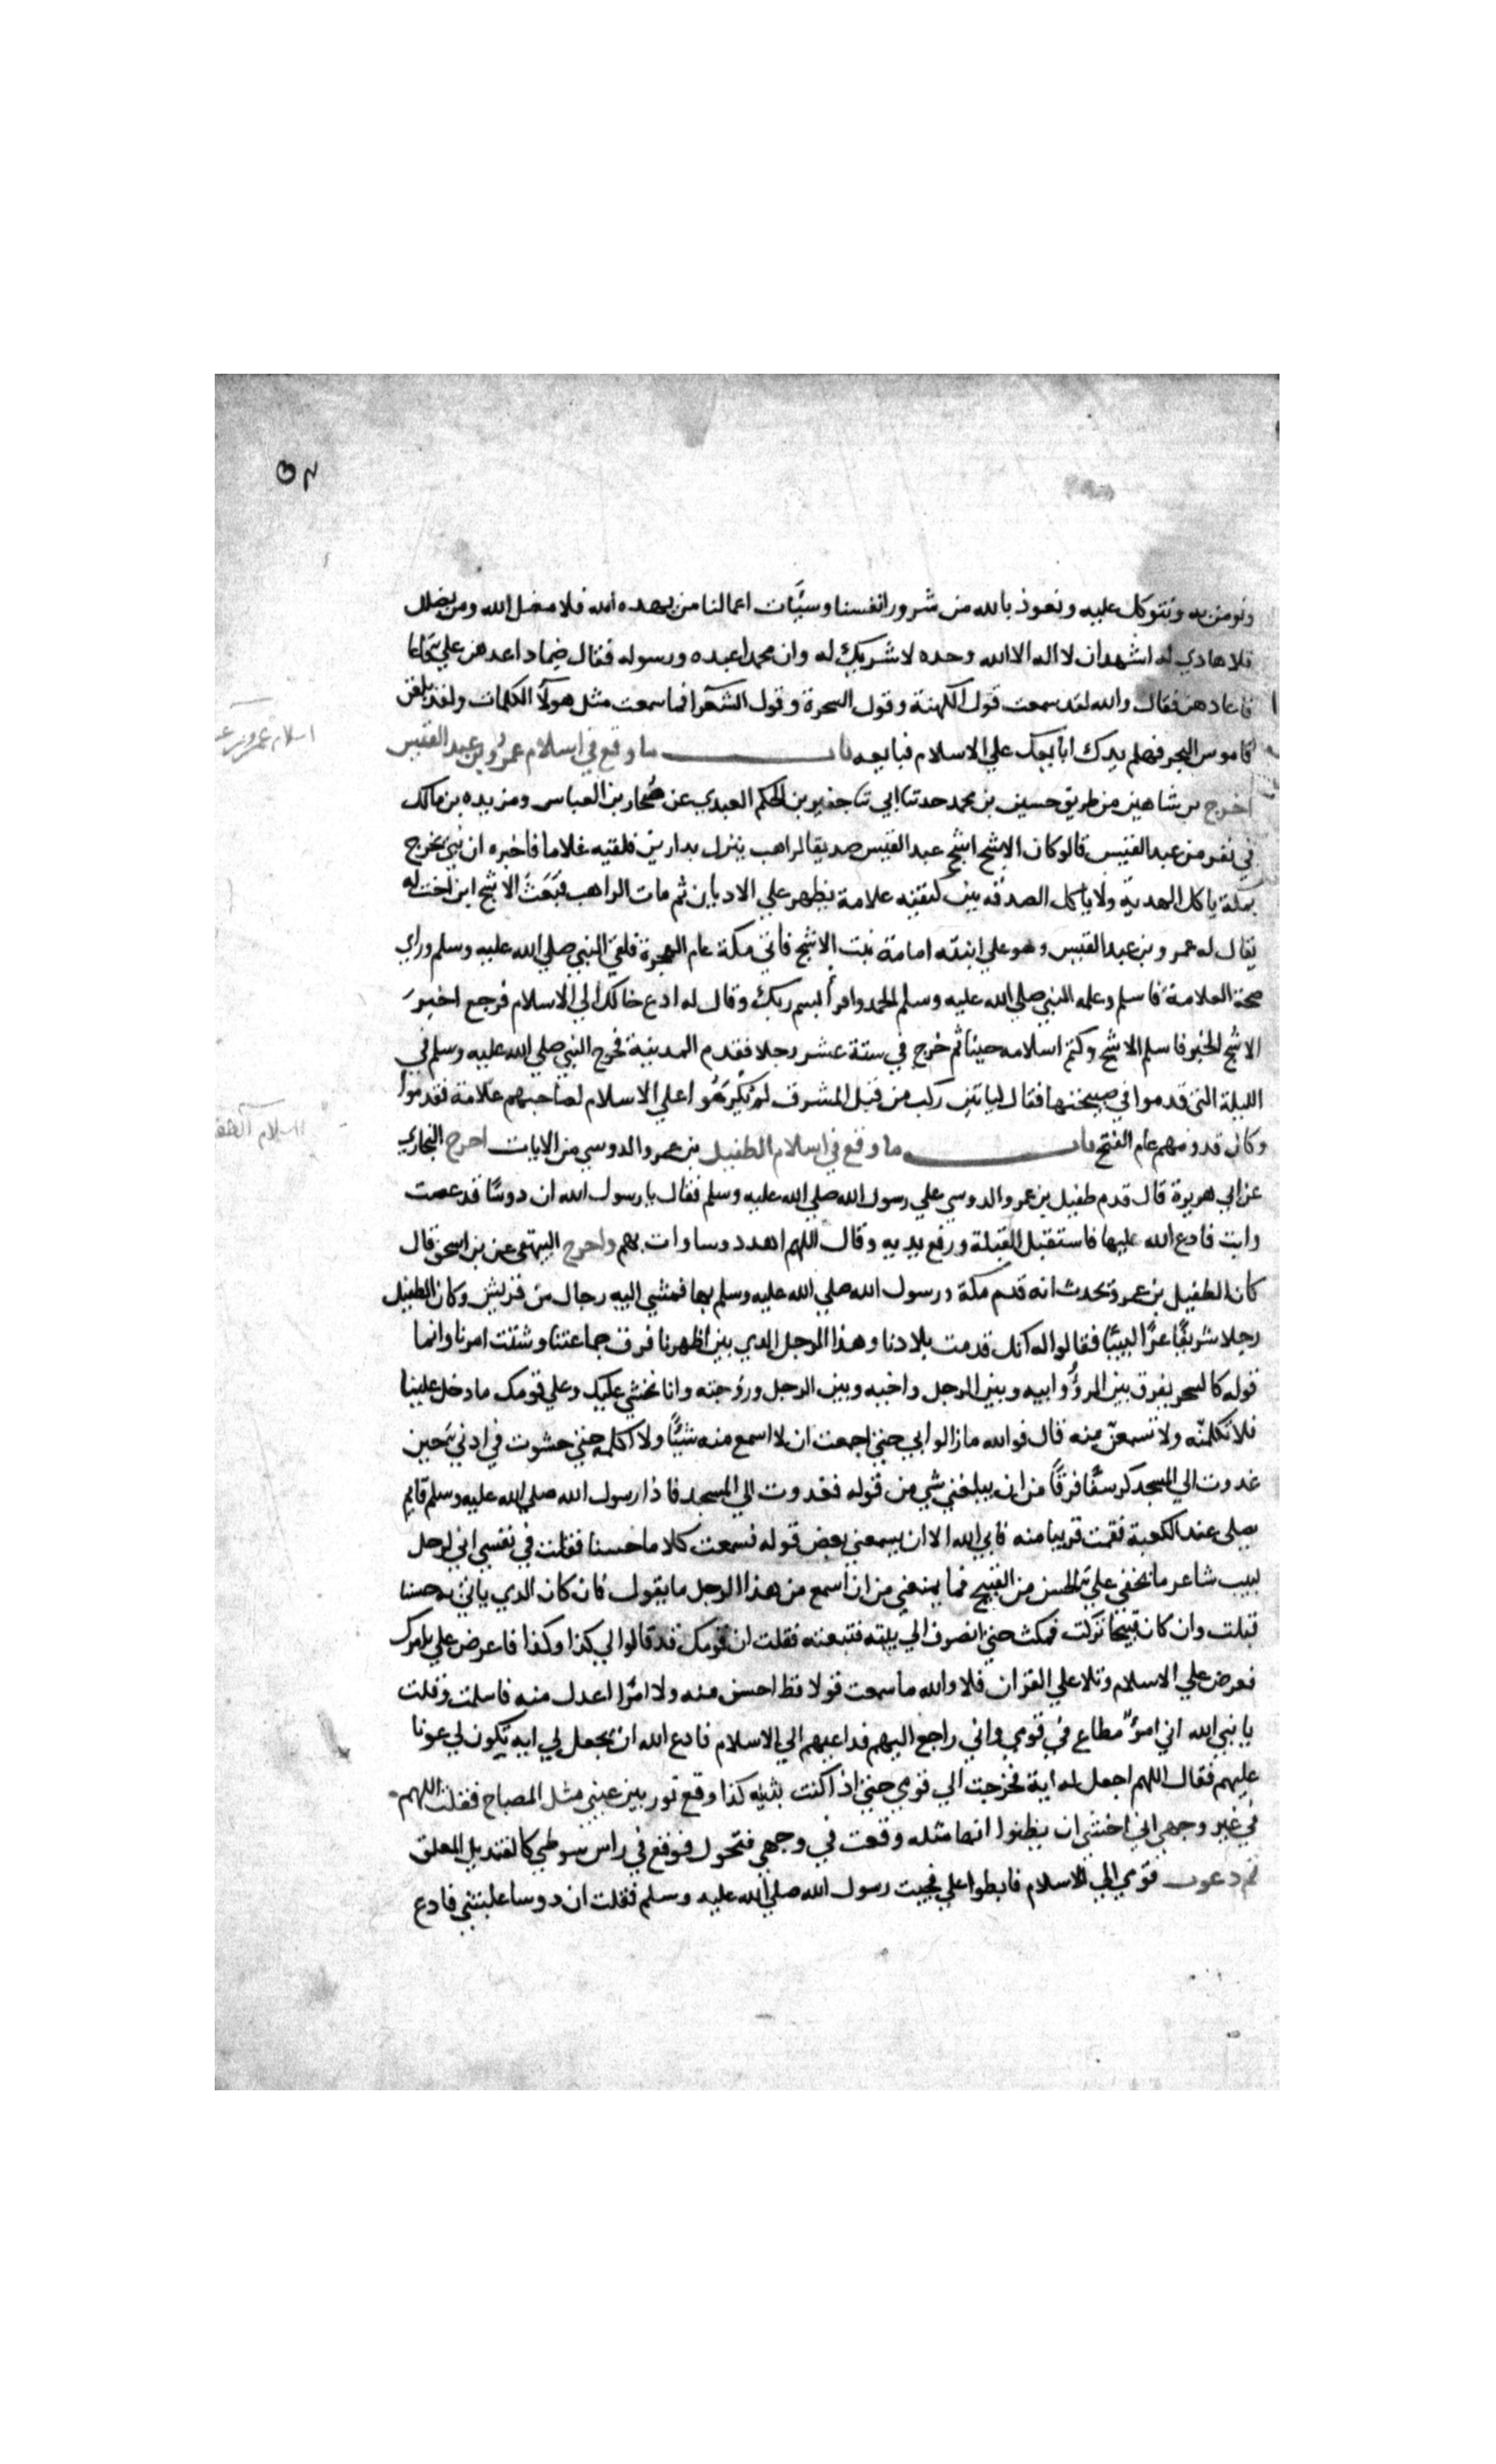 ونومن به ونتوكل عليه ونعوذ بالله من شرور انفسنا وسيّات اعمالنا من يهده الله فلا مضل الله ومن يضلل
فلا هادي له اشهد ان لا اله الا الله وحده لا شريك له وان محمدا عبده ورسوله فقال ضماد اعدهن علي
فاعادهن فقال والله لقد سمعت قول الكهنة وقول السحرة وقول الشعرا فما سمعت مثل هولآ الكلمات ولقد بلغن
قاموس البحر فهلم يدك ابايعك علي الاسلام فبايعه باب ما وقع في اسلام عمرو بن عبد القيس
اسلام عمرو بن ع
اخرج بن شاهين من طريق حسين بن محمد حدثنا ابي ثنا جفير بن الحكم العبدي عن صُحار بن العباس ومزيده بن مالك
في نفر من عبد القيس قالو كان الاشج اشج عبد القيس صديقا لراهب ينزل بدارين فلقيه غلاما فاخبره ان نبي يخرج
بمكة ياكل الهدية ولا ياكل الصدقه بين كتفيه علامة يظهر علي الاديان ثم مات الراهب فبَعَثَ الاشج ابن اخت له
يقال له عمرو بن عبد القيس وهو علي ابنته امامة بنت الاشج فاتي مكة عام الهجرة فلقي النبي صلي الله عليه وسلم وراي
صحة العلامة فاسلم وعلمه النبي صلي الله عليه وسلم الحمد واقرأ باسم ربك وقال له ادع خالك الي الاسلام فرجع اخبر
الاشج الخبر فاسلم الاشج وكتم اسلامه حينا ثم خرج في ستة عشر رجلا فقدم المدينة فخرج النبي صلي الله عليه وسلم في
الليلة التي قدموا في صبيحتها فقال لياتين ركب من قبل المشرق لم يُكرَهُوا علي الاسلام لصاحبهم علامة فقدموا
وكان قدومهم عام الفتح باب ما وقع في اسلام الطفيل بن عمرو الدوسي من الايات اخرج البخاري
اسلام الطف
عن ابي هريرة قال قدم طفيل بن عمرو الدوسي علي رسول الله صلي الله عليه وسلم فقال يا رسول الله ان دوسًا قد عصت
وابت فادع الله عليها فاستقبل القبلة ورفع يديه وقال اللهم اهد دوسا وات بهم واخرج البيهقي عن بن اسحق قال
كان الطفيل بن عمرو يحدث انه قدم مكة ورسول الله صلي الله عليه وسلم بها فمشي اليه رجال من قريش وكان الطفيل
رجلا شريفًا لبيبًا فقالوا له انك قدمت بلادنا وهذا الرجل الدي بين اظهرنا فرق جماعتنا وشتت امرنا وانما
قوله كالسحر يفرق بين المرؤ وابيه وبين الرجل واخيه وبين الرجل وزوجته وانا نخشي عليك وعلي قومك ما دخل علينا
فلا تكلمنّه ولا تسمعنّ منه قال فوالله مازالوا بي حتي اجمعت ان لا اسمع منه شيئًا ولا اكلمه حتي حشوت في ادني حين
غدوت الي المسجد كرسفًا فرقًا من ان يبلغني شي من قوله فغدوت الي المسجد فاذا رسول الله صلي الله عليه وسلم قايم
يصلي عند الكعبة فقمت قريبا منه فابي الله الا ان يسمعني بعض قوله فسمعت كلاما حسنا فقلت في نفسي اني لرجل
لبيب شاعر ما يخفي علي الحسن من القبيح فما يمنعني من ان اسمع من هذا الرجل ما يقول فان كان الدي ياتي به حسنا
قبلت وان كان قبيحا تركت فمكث حتي انصرف الي بيته فتبعته فقلت ان قومك قد قالوا لي كذا وكذا فاعرض علي امرك
فعرض علي الاسلام وتلا علي القران فلا والله ما سمعت قولا قط احسن منه ولا امرًا اعدل منه فاسلمت وقلت
يا نبي الله اني امرؤ مطاع في قومي واني راجع اليهم فداعيهم الي الاسلام فادع الله ان يجعل لي ايه تكون لي عونا
عليهم فقال اللهم اجعل له اية فخرجت الي قومي حتي اذا كنت بثنيه كذا وقع نور بين عيني مثل المصباح فقلت اللهم
في غير وجهي اني اخشي ان يظنوا انها مثله وقعت في وجهي فتحول فوقع في راس سوطي كالقنديل المعلق
ثم دعوت قومي الي الاسلام فابطوا علي فجيت رسول الله صلي الله عليه وسلم فقلت ان دوسا غلبتني فادع